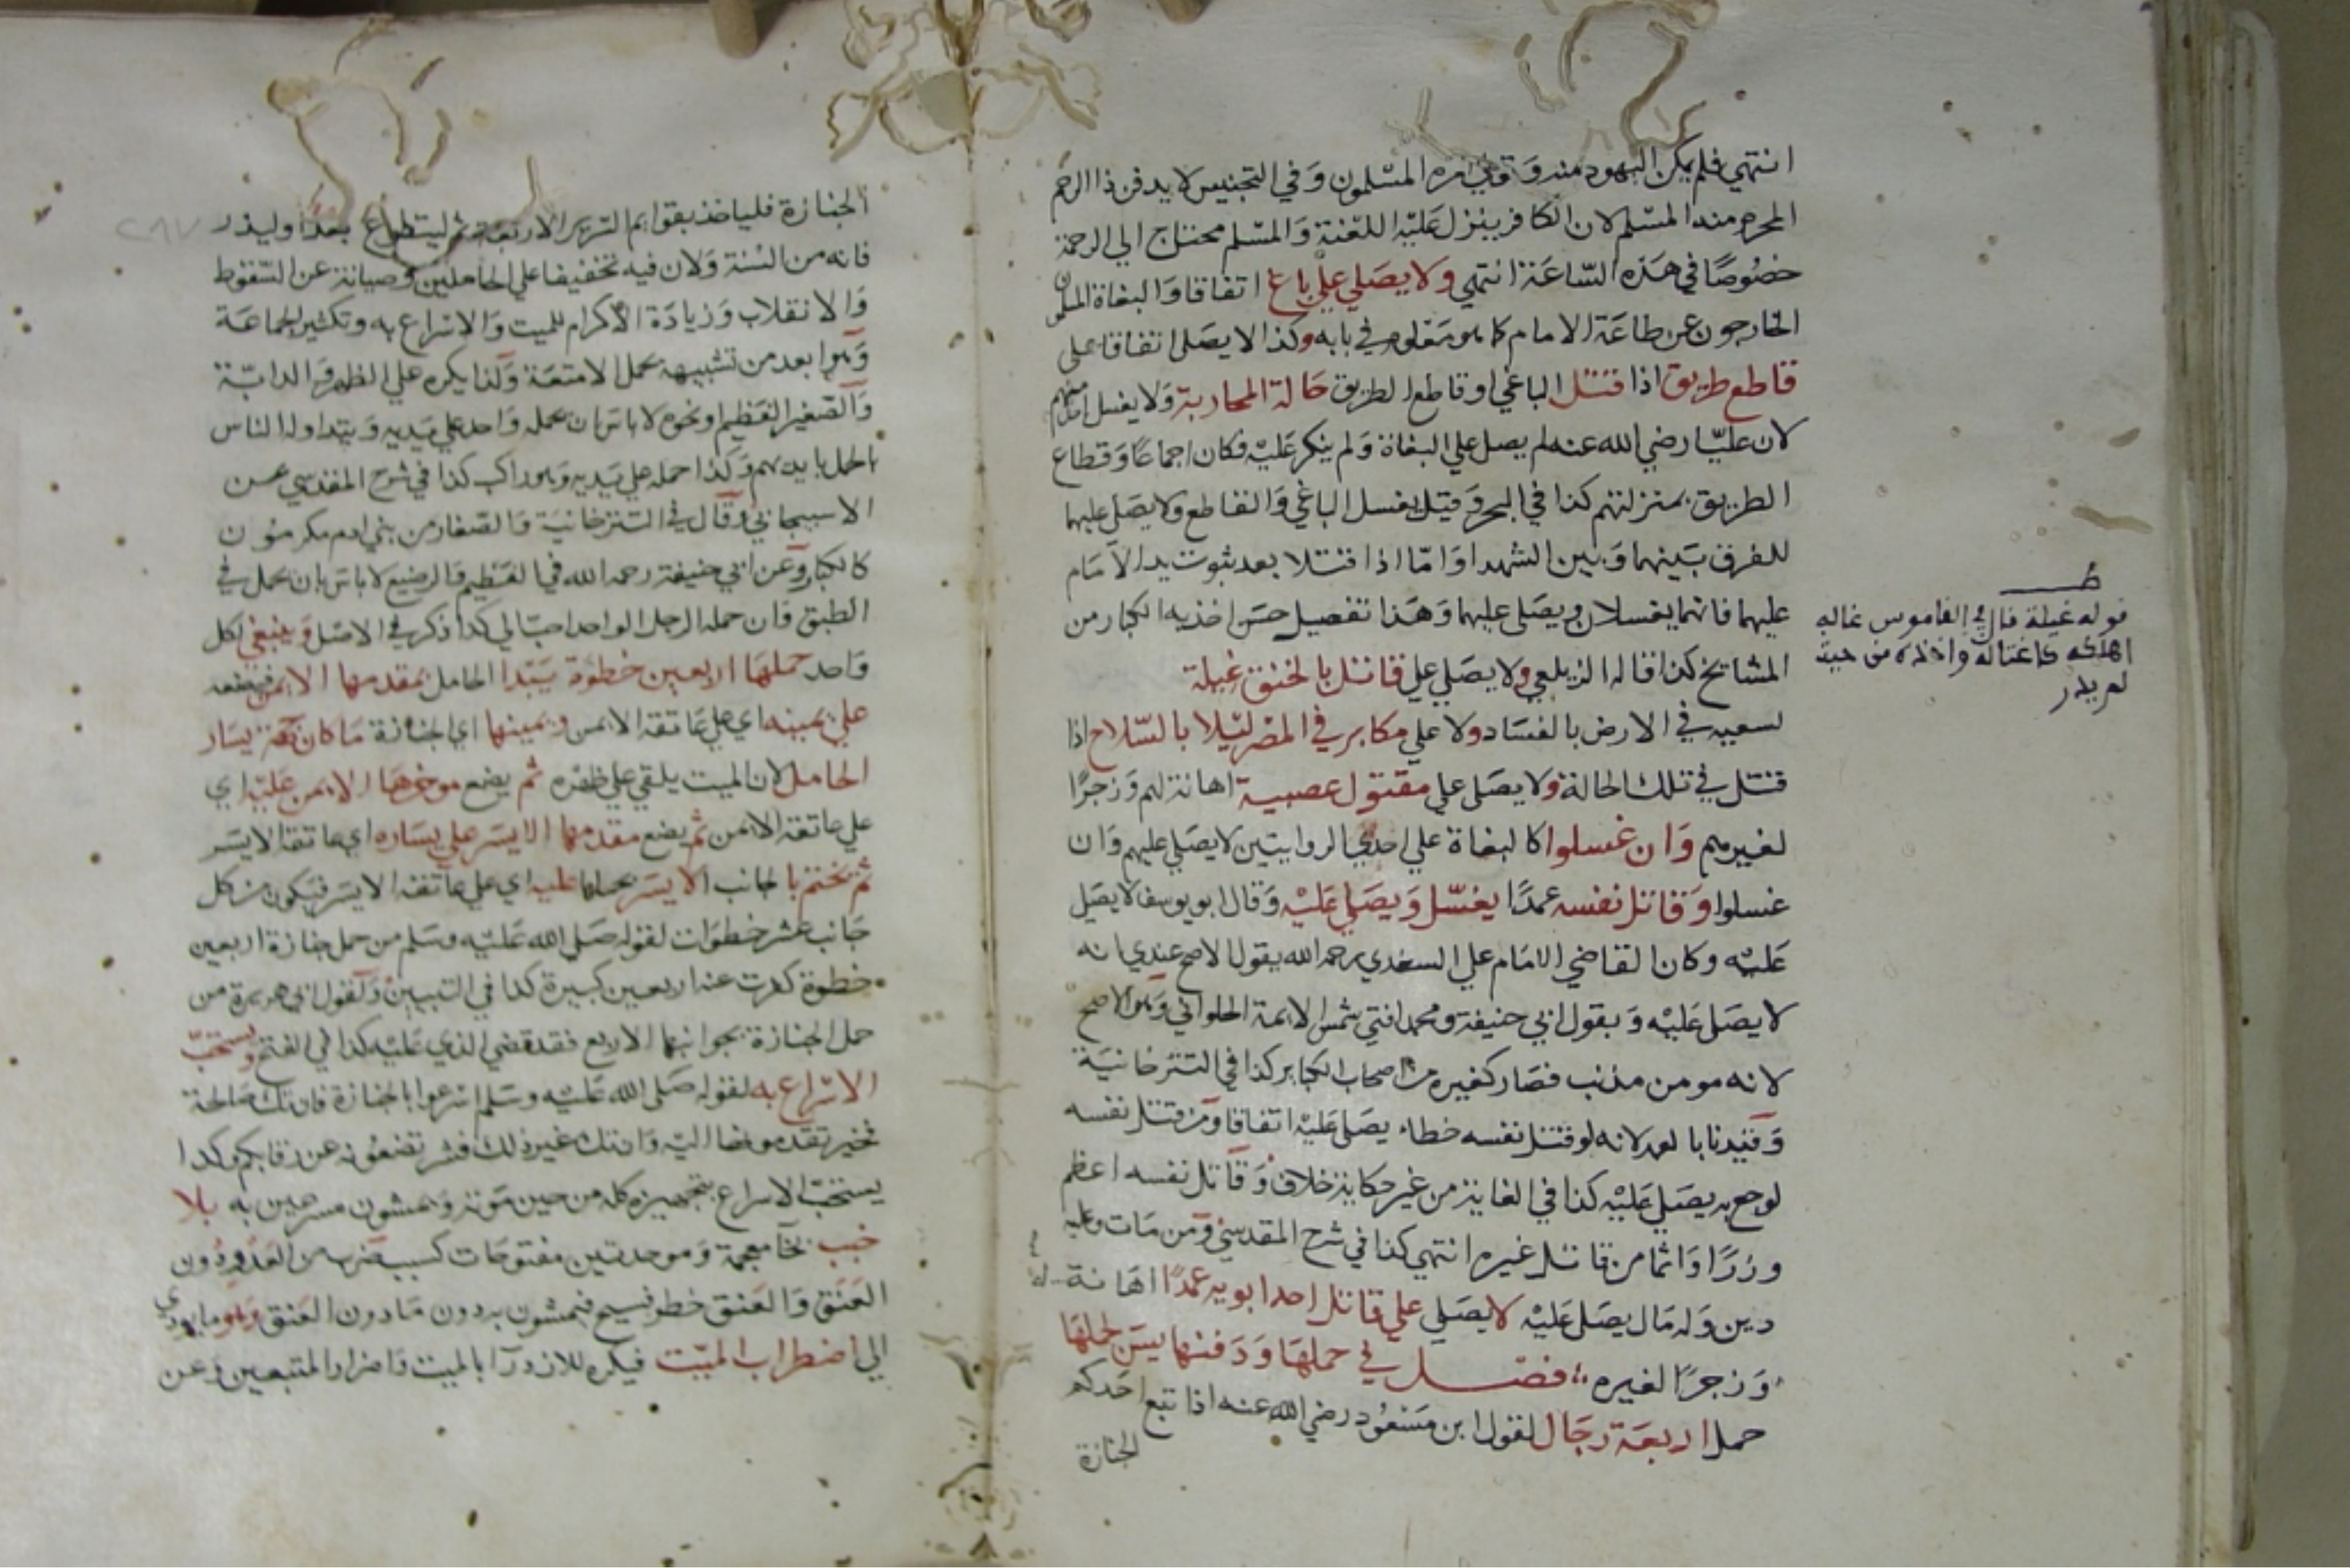 انتهي فلم يكن اليهود منه وقاربه المسلمون وفي التجنيس لا يدفن ذا الرحم
المحرم منه المسلم لان الكافر ينزل عليه اللعنة والمسلم محتاج الي الرحمة
خصوصا في هذه الساعة انتهي ولا يصلي علي باغ اتفاقا والبغاة المسلمون
الخارجون عن طاعة الامام كما هو معلوم في بابه وكذا لا يصلي اتفاقا علي
قاطع طريق اذا قتل الباغي او قاطع الطريق حالة المحاربة ولا يغسل
لان عليا رضي الله عنه لم يصل علي البغاة ولم ينكر عليه فكان اجماعا وقطاع
الطريق بمنزلتهم كذا في البحر وقيل يغسل الباغي والقاطع ولا يصلي عليهما
للفرق بينهما وبين الشهدا واما اذا قتلا بعد ثبوت يد الامام
عليهما فانهما يغسلان ويصلي عليهما وهذا تفصيل حسن اخذ به الكبار من
المشائخ كذا قاله الزيلعي ولا يصلي علي قاتل بالخنق غيلة
لسعيه في الارض بالفساد ولا علي مكابر في المصر ليلا بالسلاح اذا
قتل في تلك الحالة ولا يصلي علي مقتول عصبية اهانة لهم وزجرا
لغيرهم وان غسلوا كالبغاة علي احدي الروايتين لا يصلي عليهم وان
غسلوا وقاتل نفسه عمدا يغسل ويصلي عليه وقال ابو يوسف لا يصلي
عليه وكان القاضي الامام علي السغدي رحمه الله يقول الاصح عندي انه
لا يصلي عليه وبقول ابي حنيفة ومحمد افتي شمس الايمة الحلواني وهو الاصح
لانه مومن مذنب فصار كغيره من اصحاب الكباير كذا في التترخانية
وقيدنا بالعمد لانه لو قتل نفسه خطاء يصلي عليه اتفاقا ومن قتل نفسه
لوجع به يصلي عليه كذا في الغاية من غير حكاية خلاف وقاتل نفسه اعظم
وزرا واثما من قاتل غيره انتهي كذا في شرح المقدسي ومن مات وعليه
دين وله مال يصلي عليه لا يصلي علي قاتل احد ابويه عمدا اهانة له
وزجرا لغيره فصل في حملها ودفنها يسن لحملها
حمل اربعة رجال لقول ابن مسعود رضي الله عنه اذا تبع احدكم
الجنازة
ط
قوله غيلة قال في القاموس غاله
اهلكه كاغتاله واخذه من حيث
لم يدر
الجنازة فلياخذ بقوايم السرير الاربعة ثم ليتطوع بعد او ليذر
فانه من السنة ولان فيه تخفيفا علي الحاملين وصيانة عن السقوط
والانقلاب وزيادة الاكرام للميت والاسراع به وتكثير الجماعة
وهو ابعد من تشبيهه بحمل الامتعة ولذا يكره علي الظهر والدابة
والصغير الفطيم او نحوه لا باس بان يحمله واحد علي يديه ويتداوله الناس
بالحمل بايديهم وكذا حمله علي يديه وهو راكب كذا في شرح المقدسي عن
الاسبيجابي وقال في التترخانية والصغار من بني ادم مكرمون
كالكبار وعن ابي حنيفة رحمه الله في الفطيم والرضيع لا باس بان يحمل في
الطبق وان حمله الرجل الواحد احب الي كذا ذكر في الاصل وينبغي لكل
واحد حملها اربعين خطوة يبتدا الحامل بمقدمها الايمن فيضعه
علي يمينه اي علي عاتقه الايمن ويمينها اي الجنازة ما كان جهة يسار
الحامل لان الميت يلقي علي ظهره ثم يضع موخرها الايمن عليه اي
علي عاتقه الايمن ثم يضع مقدمها الايسر علي يساره اي عاتقه الايسر
ثم يختم بالجانب الايسر بحملها عليه اي علي عاتقه الايسر فيكون من كل
جانب عشر خطوات لقوله صلي الله عليه وسلم من حمل جنازة اربعين
خطوة كفرت عنه اربعين كبيرة كذا في التبيين ولقول ابي هريرة من
حمل الجنازة بجوانبها الاربع فقد قضي الذي عليه كذا في الفتح ويستحب
الاسراع به لقوله صلي الله عليه وسلم اسرعوا بالجنازة فان تك صالحة
فخير تقدمونها اليه وان تك غير ذلك فشر تضعونه عن رقابكم وكذا
يستحب الاسراع بتجهيزه كله من حين موته ويمشون مسرعين به بلا
خبب بخا معجمة وموحدتين مفتوحات كسبب ضرب من العدو دون
العنق والعنق خطو فسيح فيمشون به دون ما دون العنق وهو ما يودي
الي اضطراب الميت فيكره للازدرا بالميت واضرار المتبعين وعن